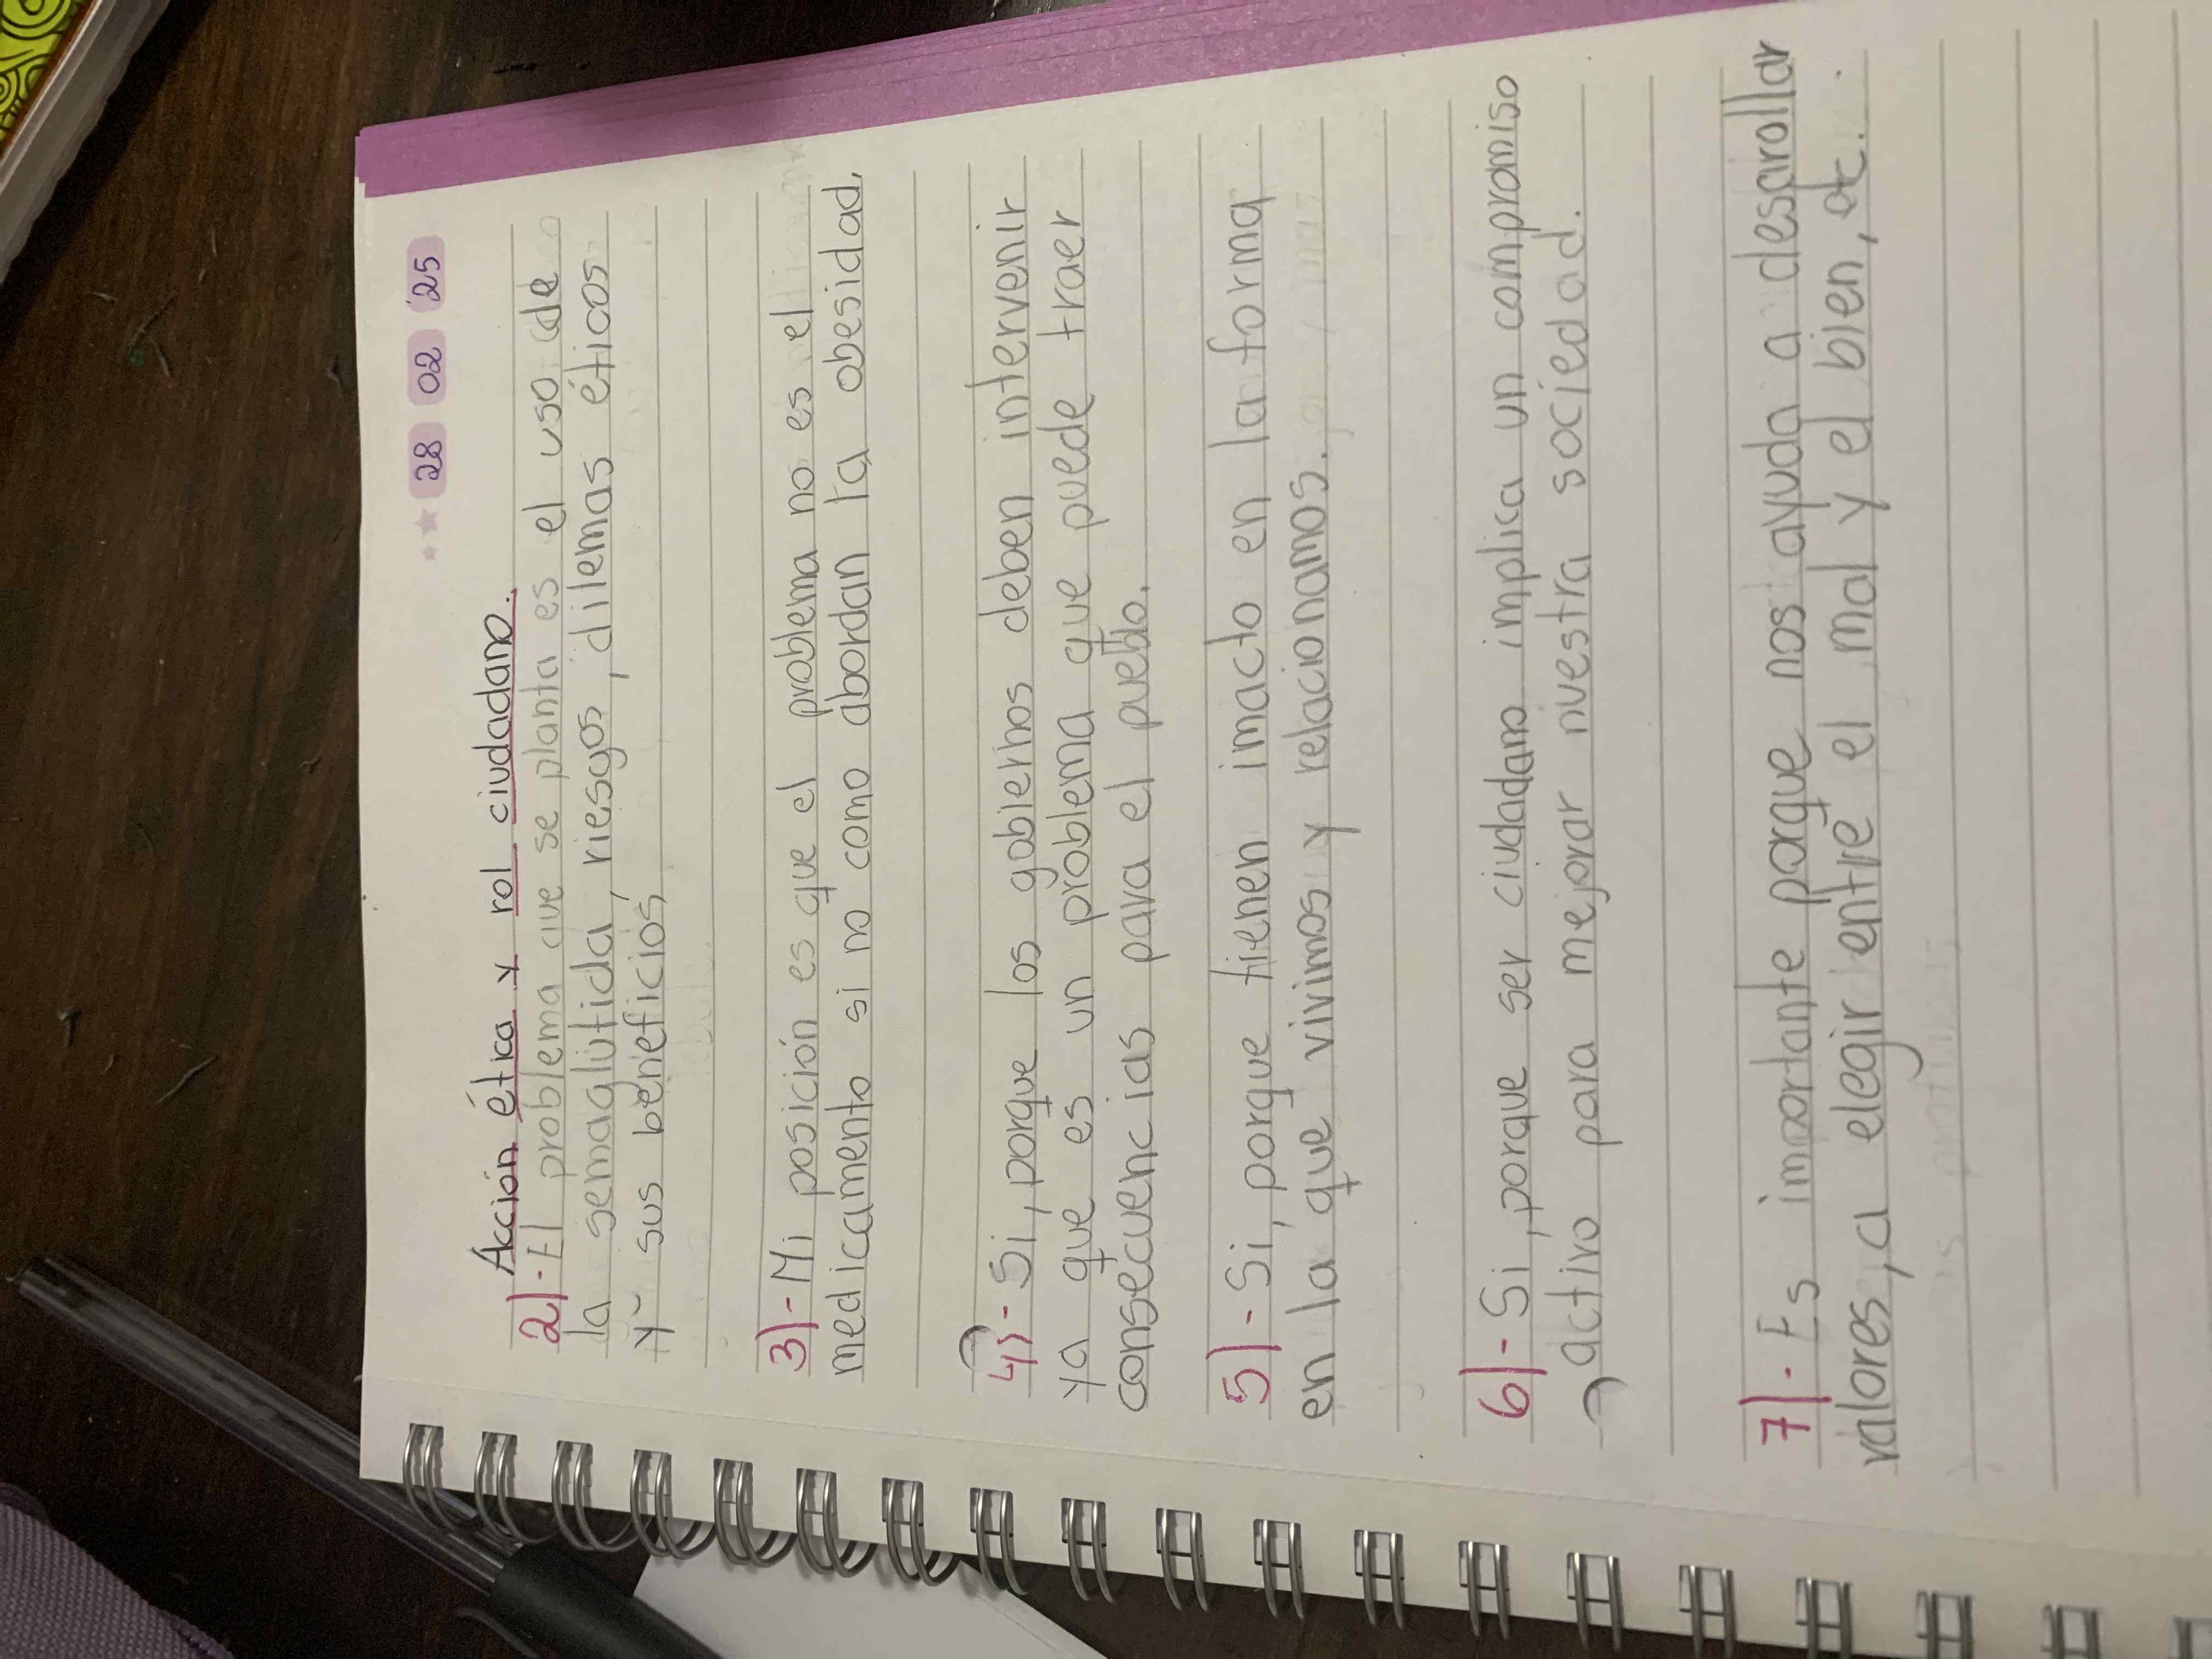 28 02 '25
Acción ética y rol ciudadano.
2)-El problema que se planta es el uso de
la semaglutida, riesgos, dilemas éticos
y sus beneficios
3)-Mi posición es que el problema no es el
medicamento si no como abordan la obesidad.
4)-Si, porque los gobiernos deben intervenir
ya que es un problema que puede traer
consecuencias para el pueblo.
5)-Si, porque tienen imacto en la forma
en la que vivimos y relacionamos.
6)-Si, porque ser ciudadano implica un compromiso
activo para mejorar nuestra sociedad.
7)-Es importante porque nos ayuda a desarollar
valores, a elegir entre el mal y el bien, etc.